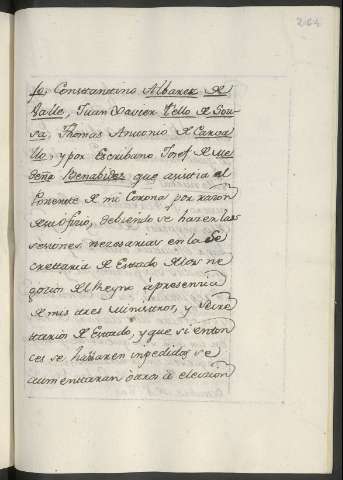 264
fo, Constantino Albarez de
Valle, Juan Xavier Tello de Sou-
sa, Thomas Antonio de Carva
llo, y por Escribano Josef de Me
Benabides que asistia el
de mi Corona por razon
de su oficio, debiendose hazer las
sesiones nezesarias en la Se
cretaria de Estado de los ne
gozios del Reyno à presenzia
de mis tres Ministros, y Secre
tarios de Estado, y que si enton
ces se hallaren inpedidos se
aumentaran otros à elezion